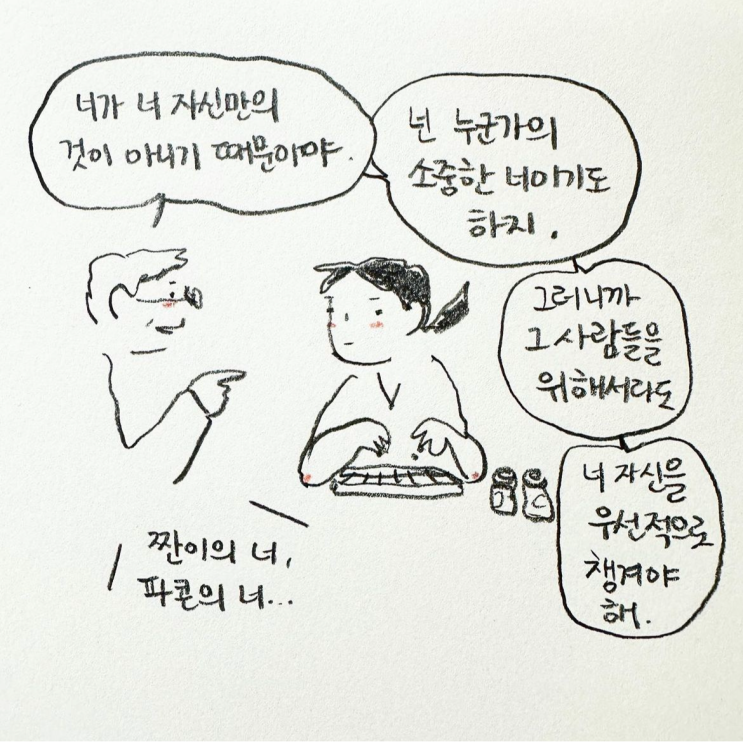 너가 너 자신만의
것이 아니기 때문이야.
넌 누군가의
소중한 너이기도
하지.
그러니까
그 사람들을
위해서라도
너 자신을
우선적으로
챙겨야
해.
짠이의 너,
파콘의 너...